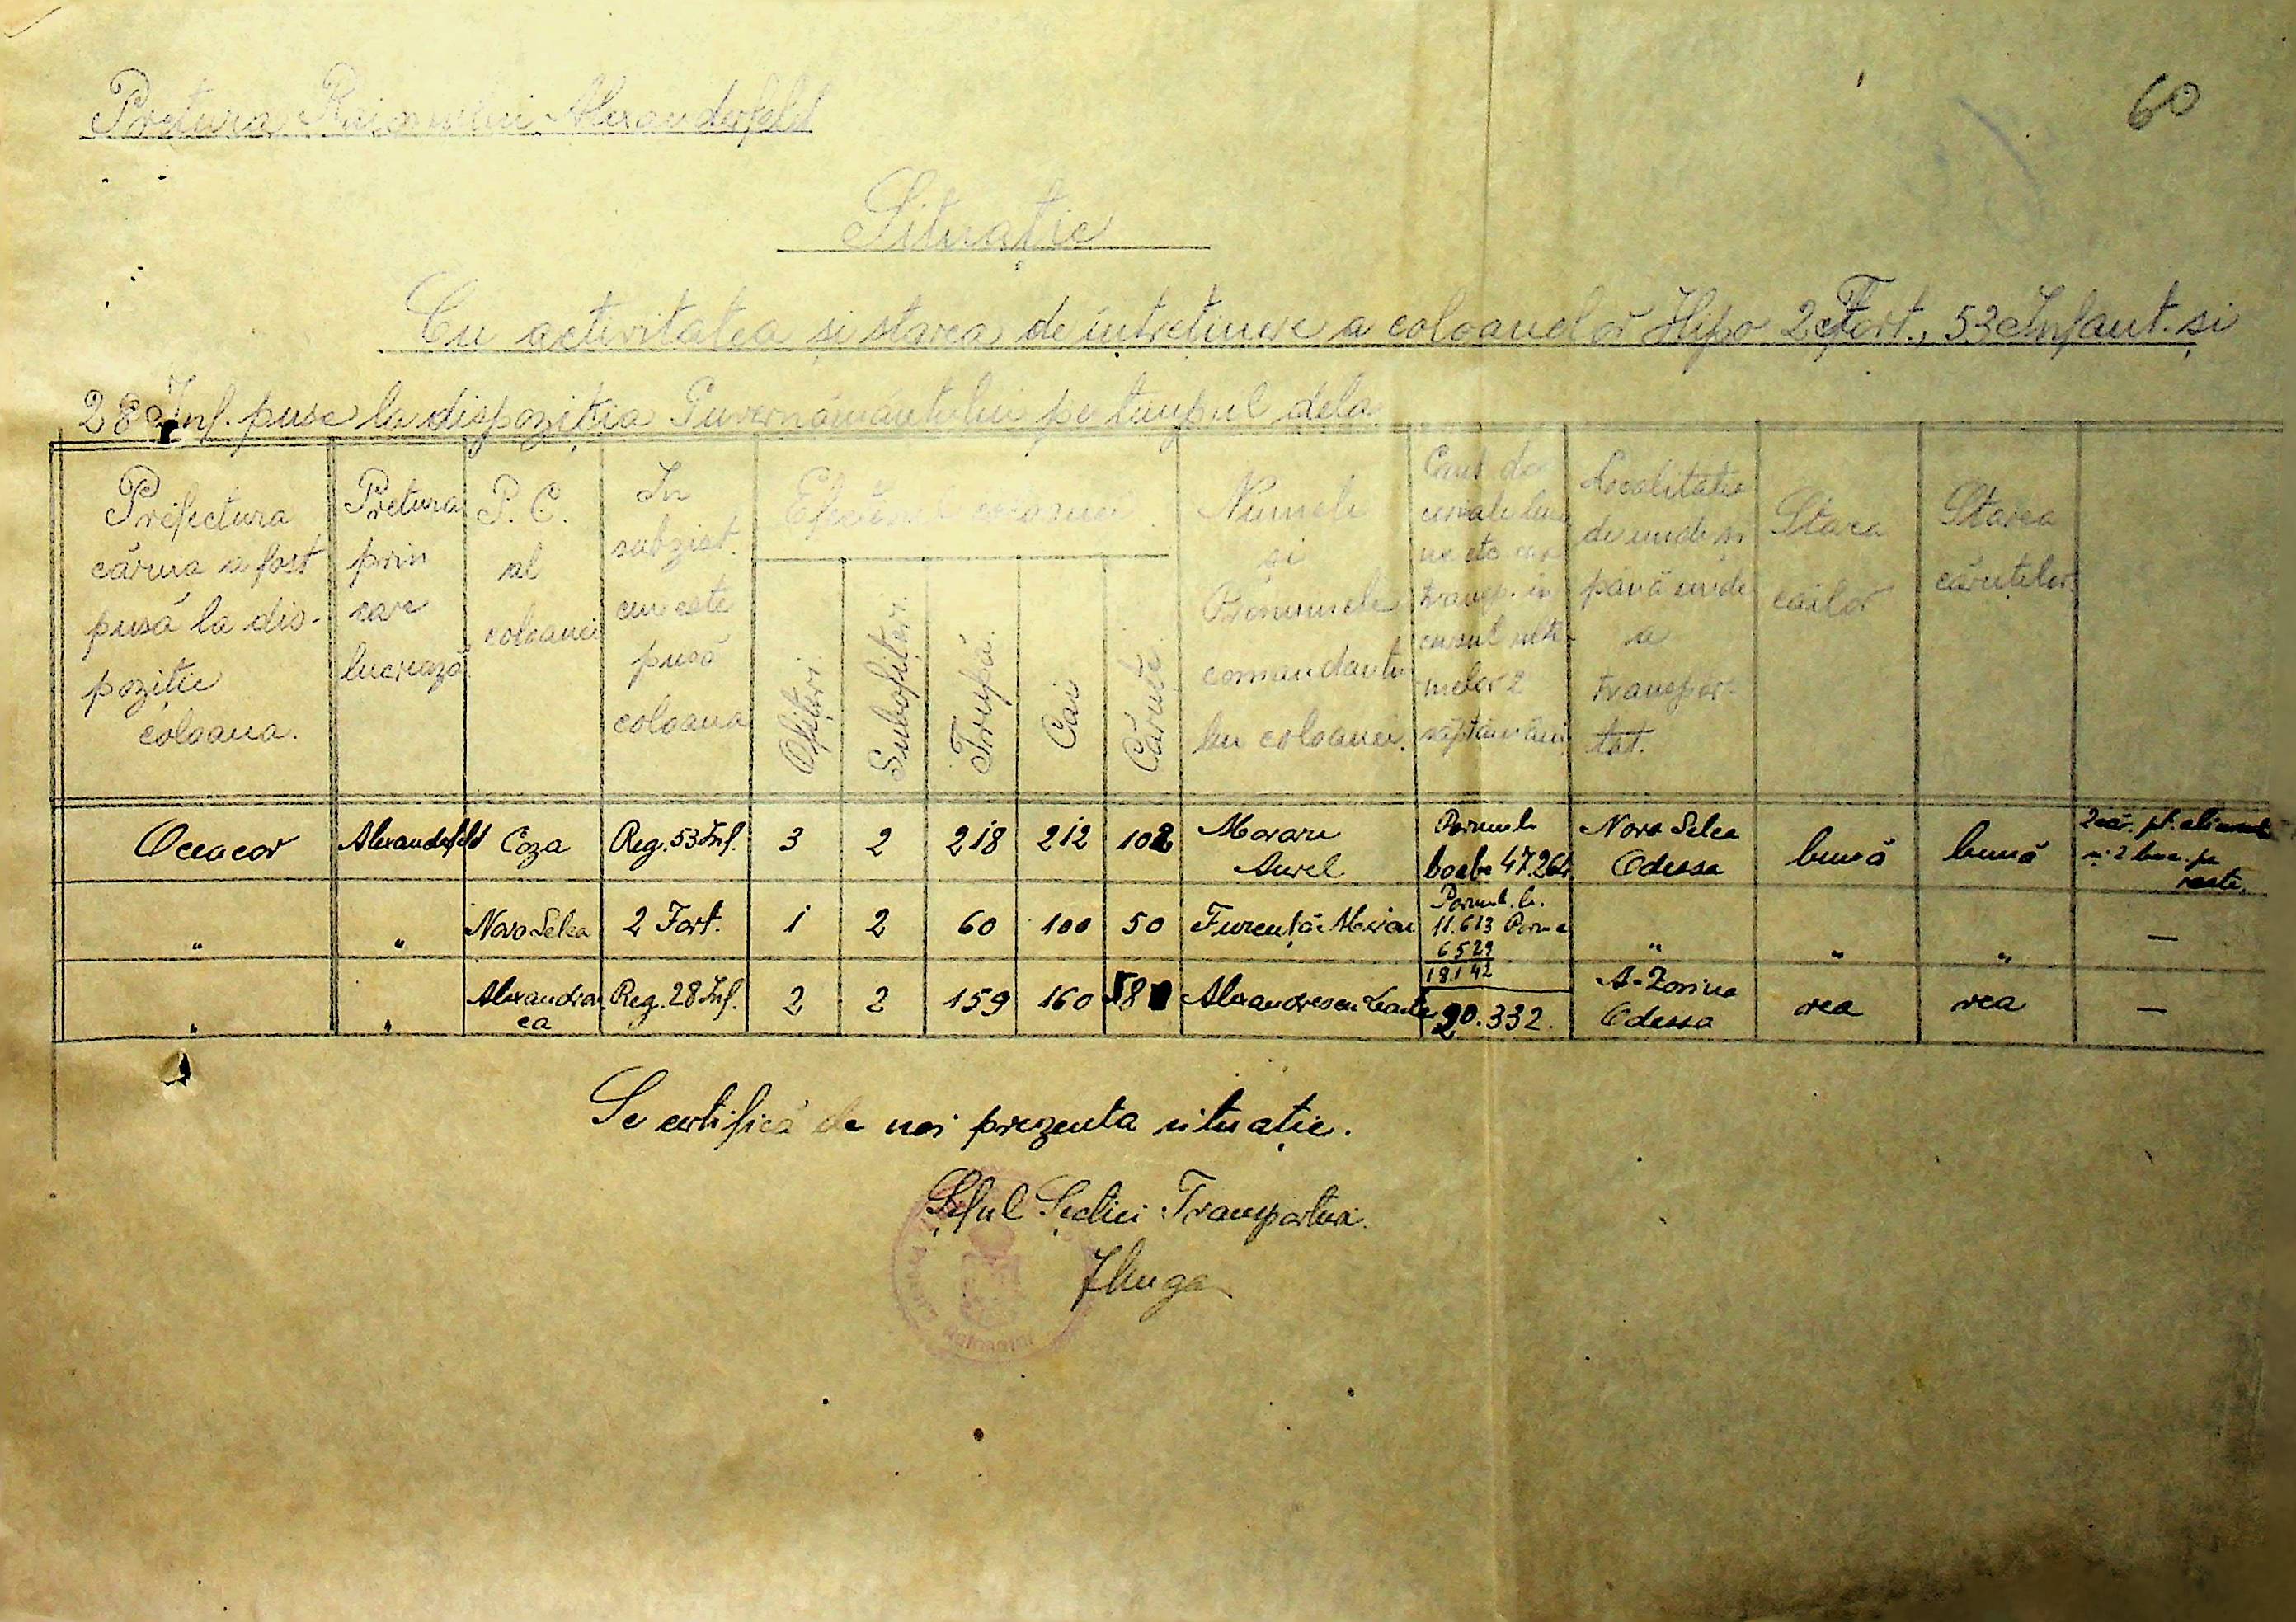 60
Pretura Raionului Alexanderfeld
Situație
Cu activitatea și starea de întreținere a coloanelor Hipo 2 Fort., 53 Infant. și
28 Inf. puse la dispoziția Guvernământului pe timpul dela
Prefectura
căruia a fost
pusă la dis-
poziție
coloana.
Pretura
prin
care
lucrează
P. C.
al
coloanei
In
subzist.
cui este
pusă
coloana
Ofițeri
Subofițeri.
Trupă.
Cai
Căruțe
Numele
și
Pronumele
comandantu-
lui coloanei.
Cant. de
cereale
transp. în
cursul ulti-
melor 2
săptămâni
Localitatea
de unde și
până unde
a
transpor-
tat.
Starea
cailor
Starea
căruțelor
Oceacov Alexanderfeld Coza Reg. 53 Inf. 3 2 218 212 102 Moraru Aurel Porumb boabe Nova Selca Odessa bună bună 2 căr. pt. alimente
" " Novo Selca 2 Fort. 1 2 60 100 50 Porumb. b. 11.613 6529 18.142 " " " —
" " Alexandrovca Reg. 28 Inf. 2 2 159 160 58 Alexandrescu 20.332. Odessa rea rea —
Se certifică de noi prezenta situație.
Șeful Secției Transporturi